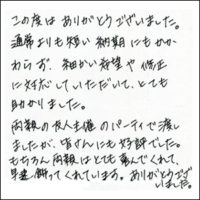 この度はありがとうございました。
通常よりも短い納期にもかか
わらず、細かい希望や修正
に対応していただいて、とても
助かりました。
両親の友人主催のパーティで渡し
ましたが、皆さんにも好評でした。
もちろん両親はとても喜んでくれて、
早速飾ってくれています。ありがとうござ
いました。